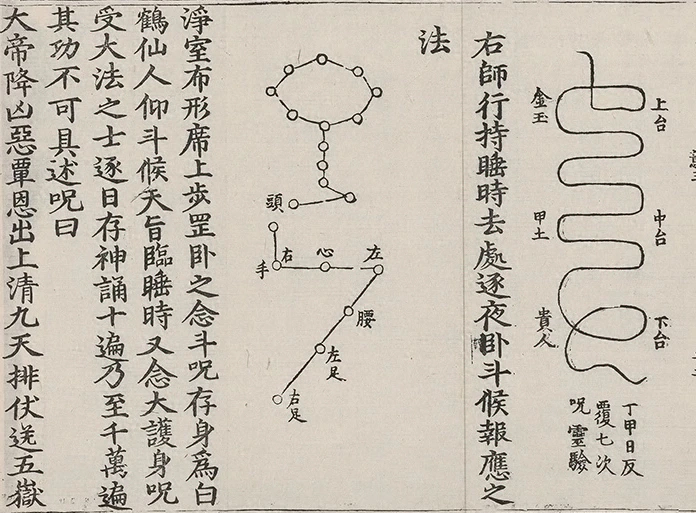 上台
中台
下台
金玉
甲土
貴人
丁甲日反
覆七次
呪靈驗
右師行持睡時去處逐夜卧斗候報應之
法
頭
手
右
心
左
腰
左足
右足
淨室布形席上步罡卧之念斗呪存身為白
鶴仙人仰斗候天旨臨睡時又念大護身呪
受大法之士逐日存神誦十遍乃至千萬遍
其功不可具述呪曰
大帝降凶惡覃恩出上清九天排仗送五嶽